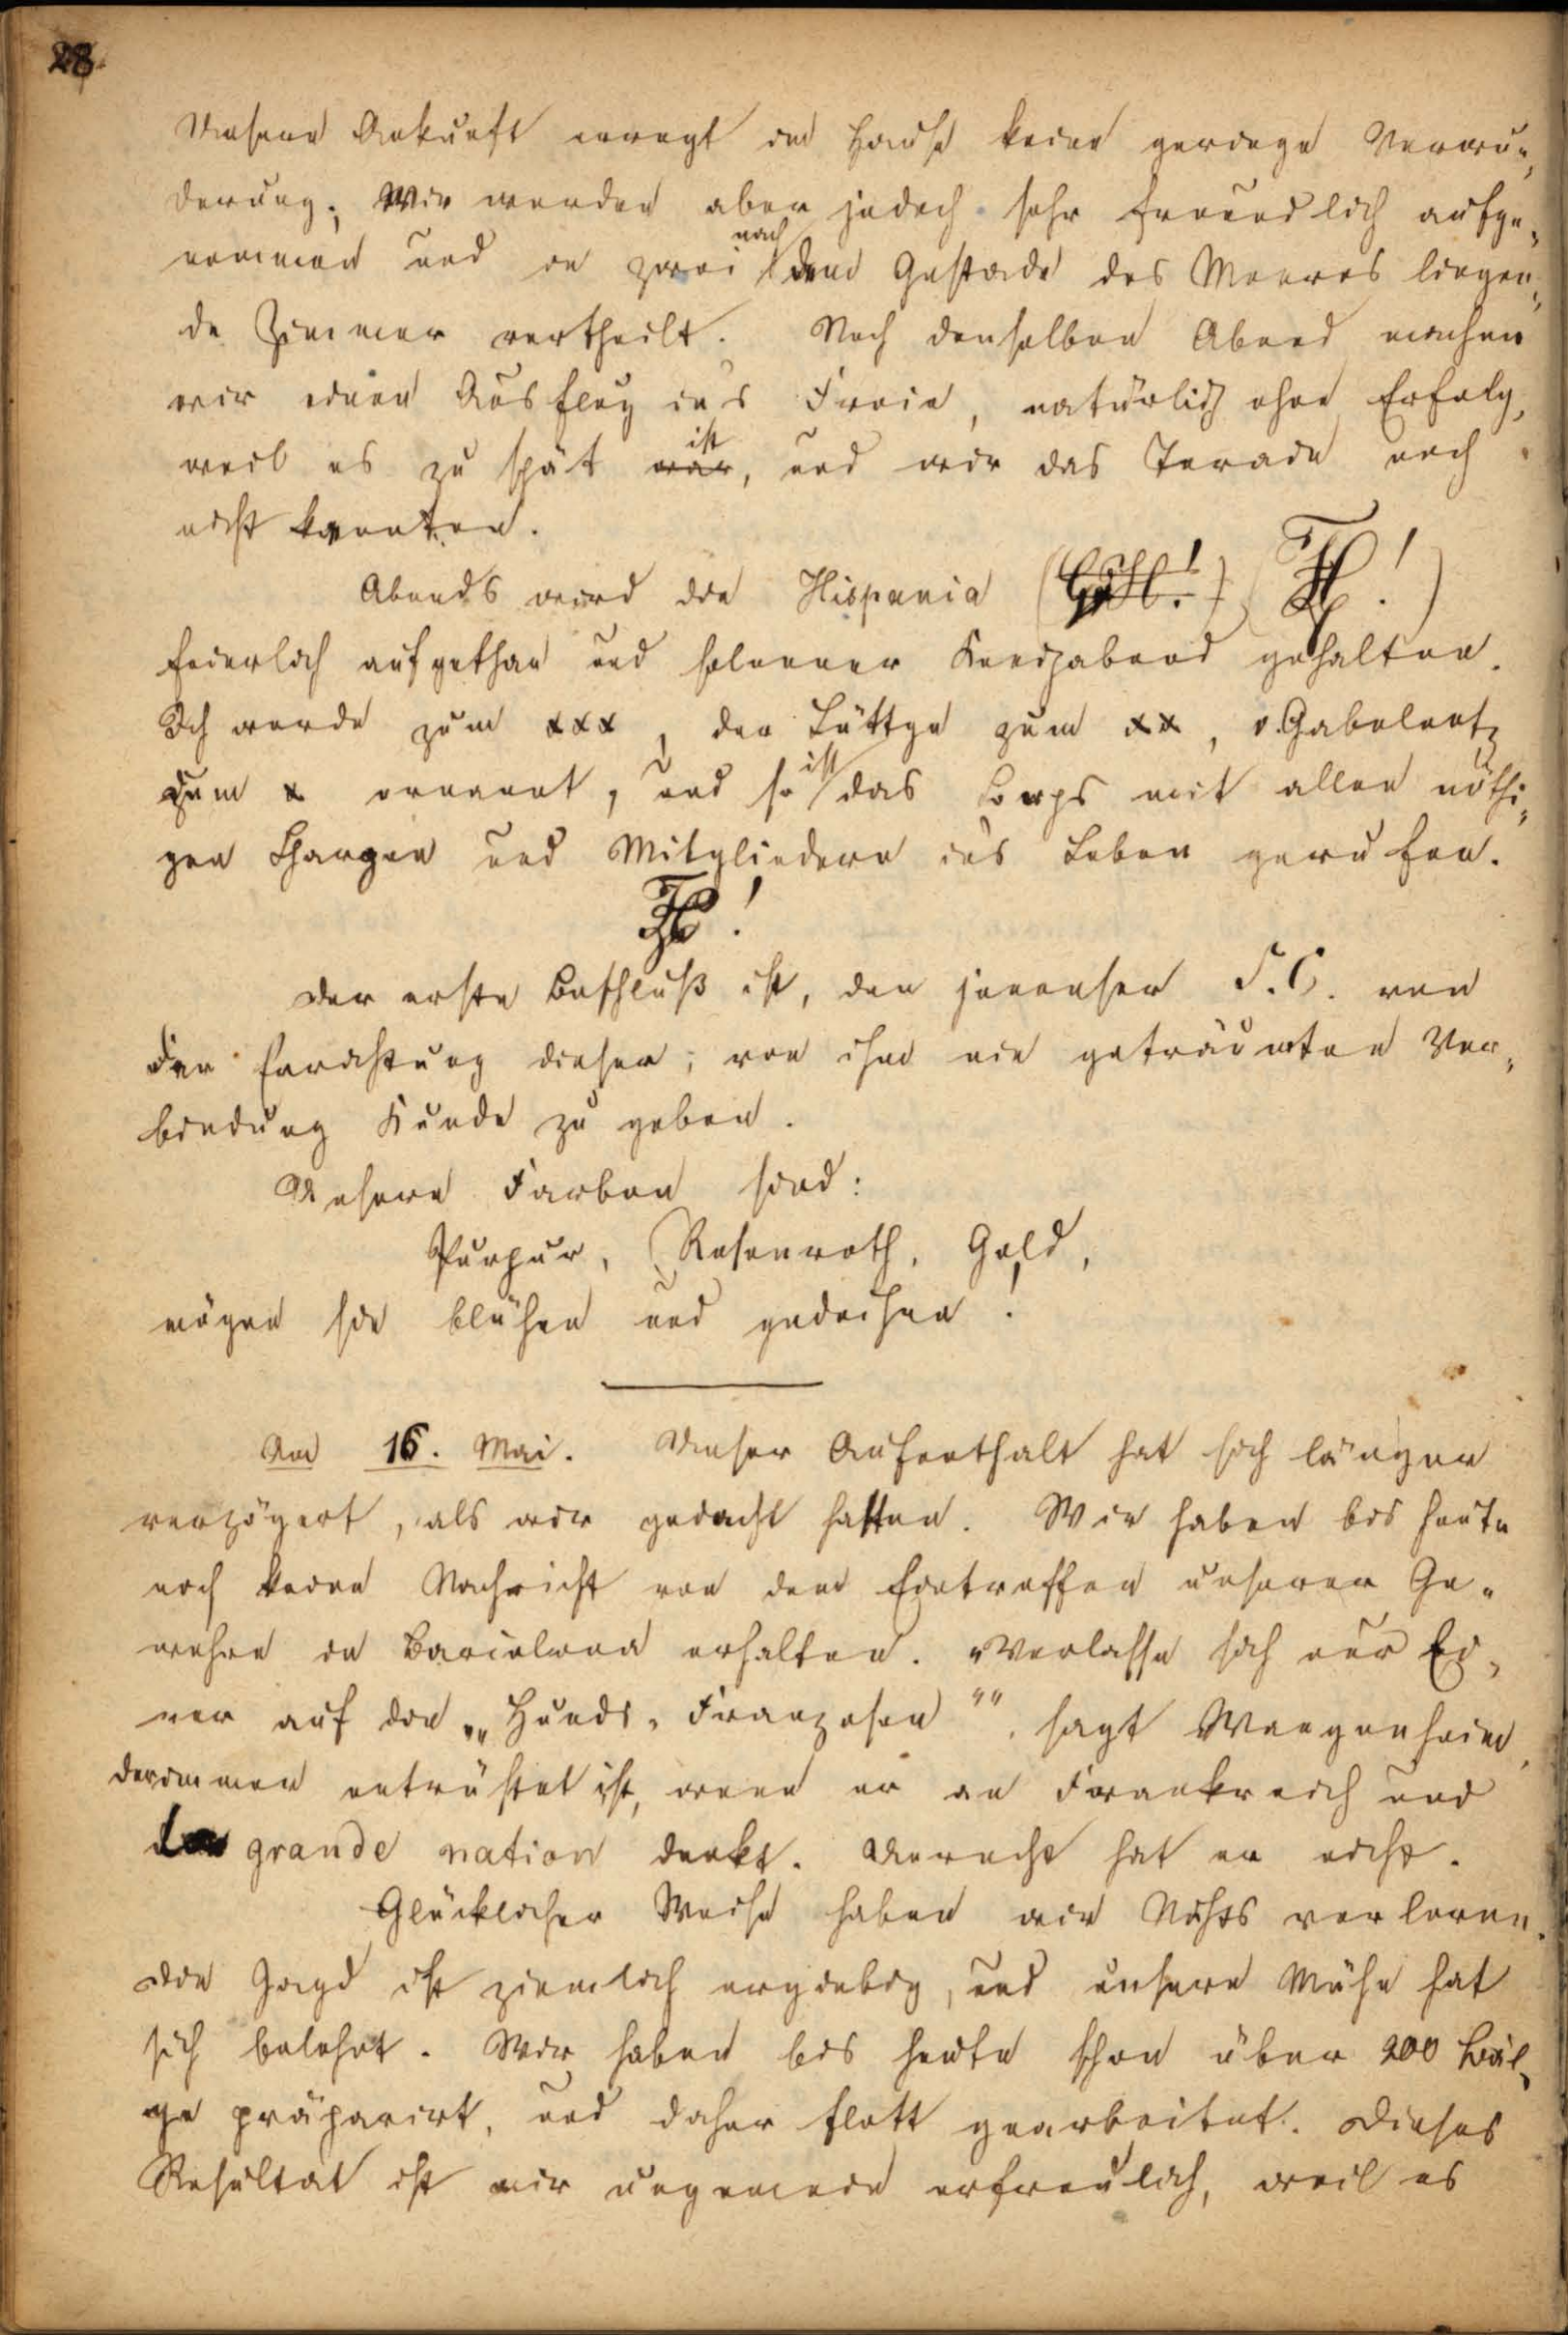 28.
Unsere Ankunft erregt im Hause keine geringe Verwun„
derung; Wir werden aber jedoch sehr freundlich aufge„
nommen und in zwei nach dem Gestade des Meeres liegen„
de Zimmer vertheilt. Noch denselben Abend machen
wir einen Ausflug ins Freie, natürlich ohne Erfolg,
weil es zu spät war ist, und wir das Terain noch
nicht kannten.
Abends wird die Hispania
feierlich aufgethan und solenner Kneipabend gehalten.
Ich werde zum xxx, der Lüttge zum xx, v. Gabelentz
zum x ernannt, und so ist das Corps mit allen nöthi„
gen Chargen und Mitgliedern ins Leben gerufen.
Der erste Beschluß ist, den jenenser S.C. von
der Errichtung dieser, von ihm nie geträumten Ver„
bindung Kunde zu geben.
Unsere Farben sind:
Purpur, Rosenroth, Gold,
mögen sie blühen und gedeihen!
Am 16. Mai. Unser Aufenthalt hat sich länger
verzögert, als wir gedacht hatten. Wir haben bis heute
noch keine Nachricht von dem Eintreffen unserer Ge„
wehre in Barcelona erhalten. „Verlasse sich nur Ei„
ner auf die „„Hunds„Franzosen"", sagt Wangenheim,
der immer entrüstet ist, wenn er an Frankreich und
la grande nation denkt. Unrecht hat er nicht.
Glücklicher Weise haben wir Nichts verloren.
Die Jagd ist ziemlich ergiebig, und unsere Mühe hat
sich belohnt. Wir haben bis heute schon über 200 Bäl„
ge präparirt, und daher flott gearbeitet. Dieses
Resultat ist mir ungemein erfreulich, weil es